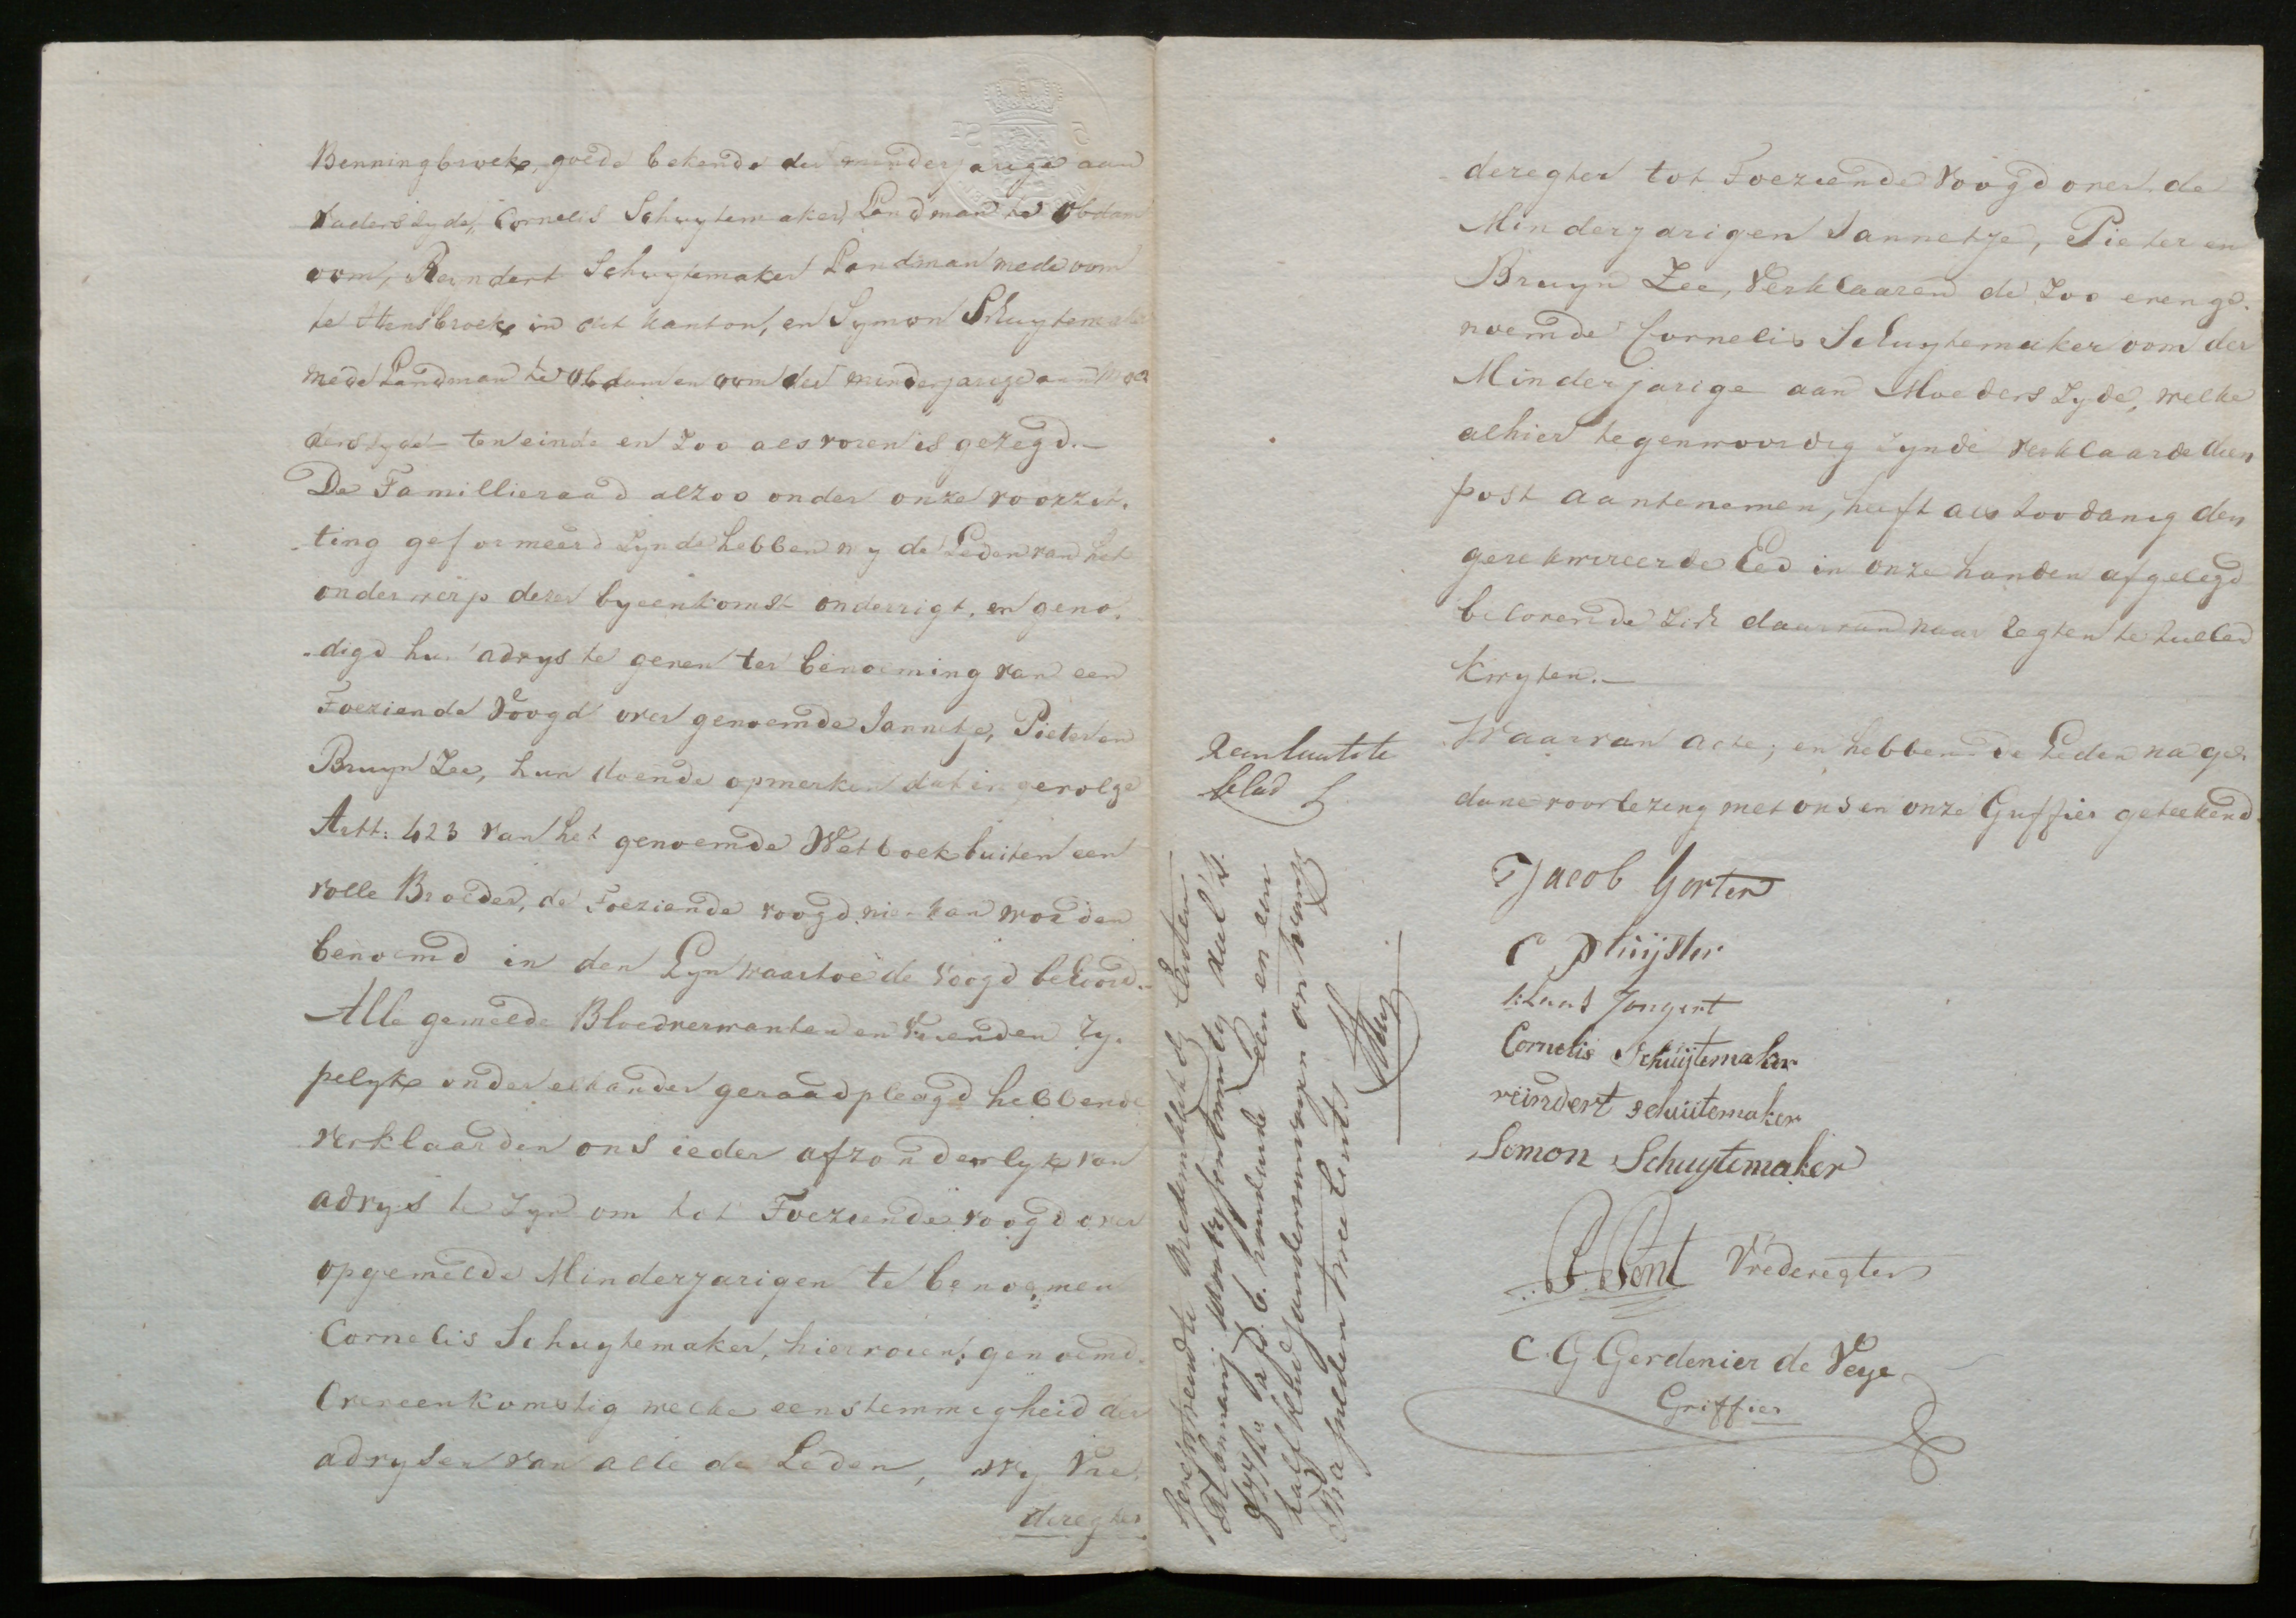 Benningbroek, goede bekende der minderjarige aan
vaders zyde, Cornelis Schuytemaker Landman te Obdam
oom, Reindert Schuytemaker Landman mede oom
te Hensbroek in dit kanton, en Symon Schuytemaker
mede Landman te Obdam en oom der minderjarige aan Moe
ders zyde ten einde en zoo als voren is gezegd.—
De Famillieraad alzoo onder onze voorzit.
ting geformeerd zynde hebben wy de Leden van het
onderwerp dezer byeenkomst onderrigt, en geno.
digd hun advys te geven ter benoeming van een
Toeziende Voogd over genoemde Jannetje, Pieter en
Bruyn Zee, hun doende opmerken dat in gevolge
Artt: 423 van het genoemde Wetboek buiten een
volle Broeder, de Toeziende voogd niet kan worden
benoemd in den Lyn waartoe de voogd behoord.—
Alle gemelde Bloedverwanten en Vrienden ry.
pelyk onder elkander geraadpleegd hebbende
verklaarden ons ieder afzonderlyk van
advys te zyn om tot Toeziende voogd over
opgemelde Minderjarigen te benoemen
Cornelis Schuytemaker, hier voren genoemd.
Overeenkomstig welke eenstemmigheid der
advysen van alle de Leden, wy Vre.
deregter
deregter tot Toeziende Voogd over de
Minderjarigen Jannetje, Pieter en
Bruyn Zee, Verklaaren de zoo evenge.
noemde Cornelis Schuytemaker oom der
Minderjarige aan Moeders zyde, welke
alhier tegenwoordig zynde verklaarde dien
post aantenemen, heeft als zoodanig den
gerekwireerde Eed in onze handen afgelegd
belovende zich daarvan naar regten te zullen
kwyten.—
Waarvan acte; en hebben de Leden na ge.
dane voorlezing met ons en onze Griffier geteekend.
Een laatste
blad
Jacob Gorter
C Pluijster
Klaas Jongert
Cornelis Schuijtemaker
reindert schuitemaker
Semon Schuytemaker
P. Pont Vrederegter
C. G Gerdenier de Veye
Griffier